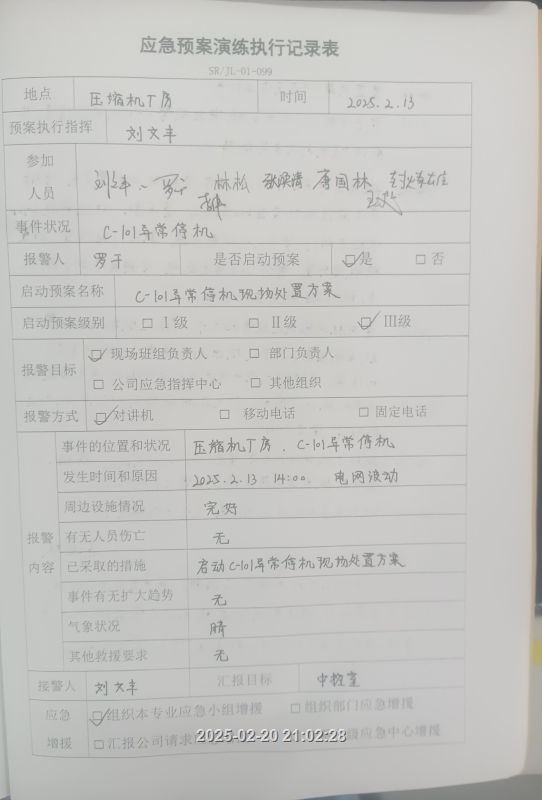 应急预案演练执行记录表
SR/JL-01-099
地点 压缩机厂房 时间 2025.2.13
预案执行指挥 刘文丰
参加人员 林松 唐国林
事件状况 C-101异常停机
报警人 罗干 是否启动预案 ☑是 □否
启动预案名称 C-101异常停机现场处置方案
启动预案级别 □Ⅰ级 □Ⅱ级 ☑Ⅲ级
报警目标 ☑现场班组负责人 □部门负责人
□公司应急指挥中心 □其他组织
报警方式 ☑对讲机 □移动电话 □固定电话
报警内容
事件的位置和状况 压缩机厂房、C-101异常停机
发生时间和原因 2025.2.13 14:00 电网波动
周边设施情况 完好
有无人员伤亡 无
已采取的措施 启动C-101异常停机现场处置方案
事件有无扩大趋势 无
气象状况 晴
其他救援要求 无
接警人 刘文丰 汇报目标 中控室
应急增援 ☑组织本专业应急小组增援 □组织部门应急增援
□汇报公司请求 应急中心增援
2025-02-20 21:02:28